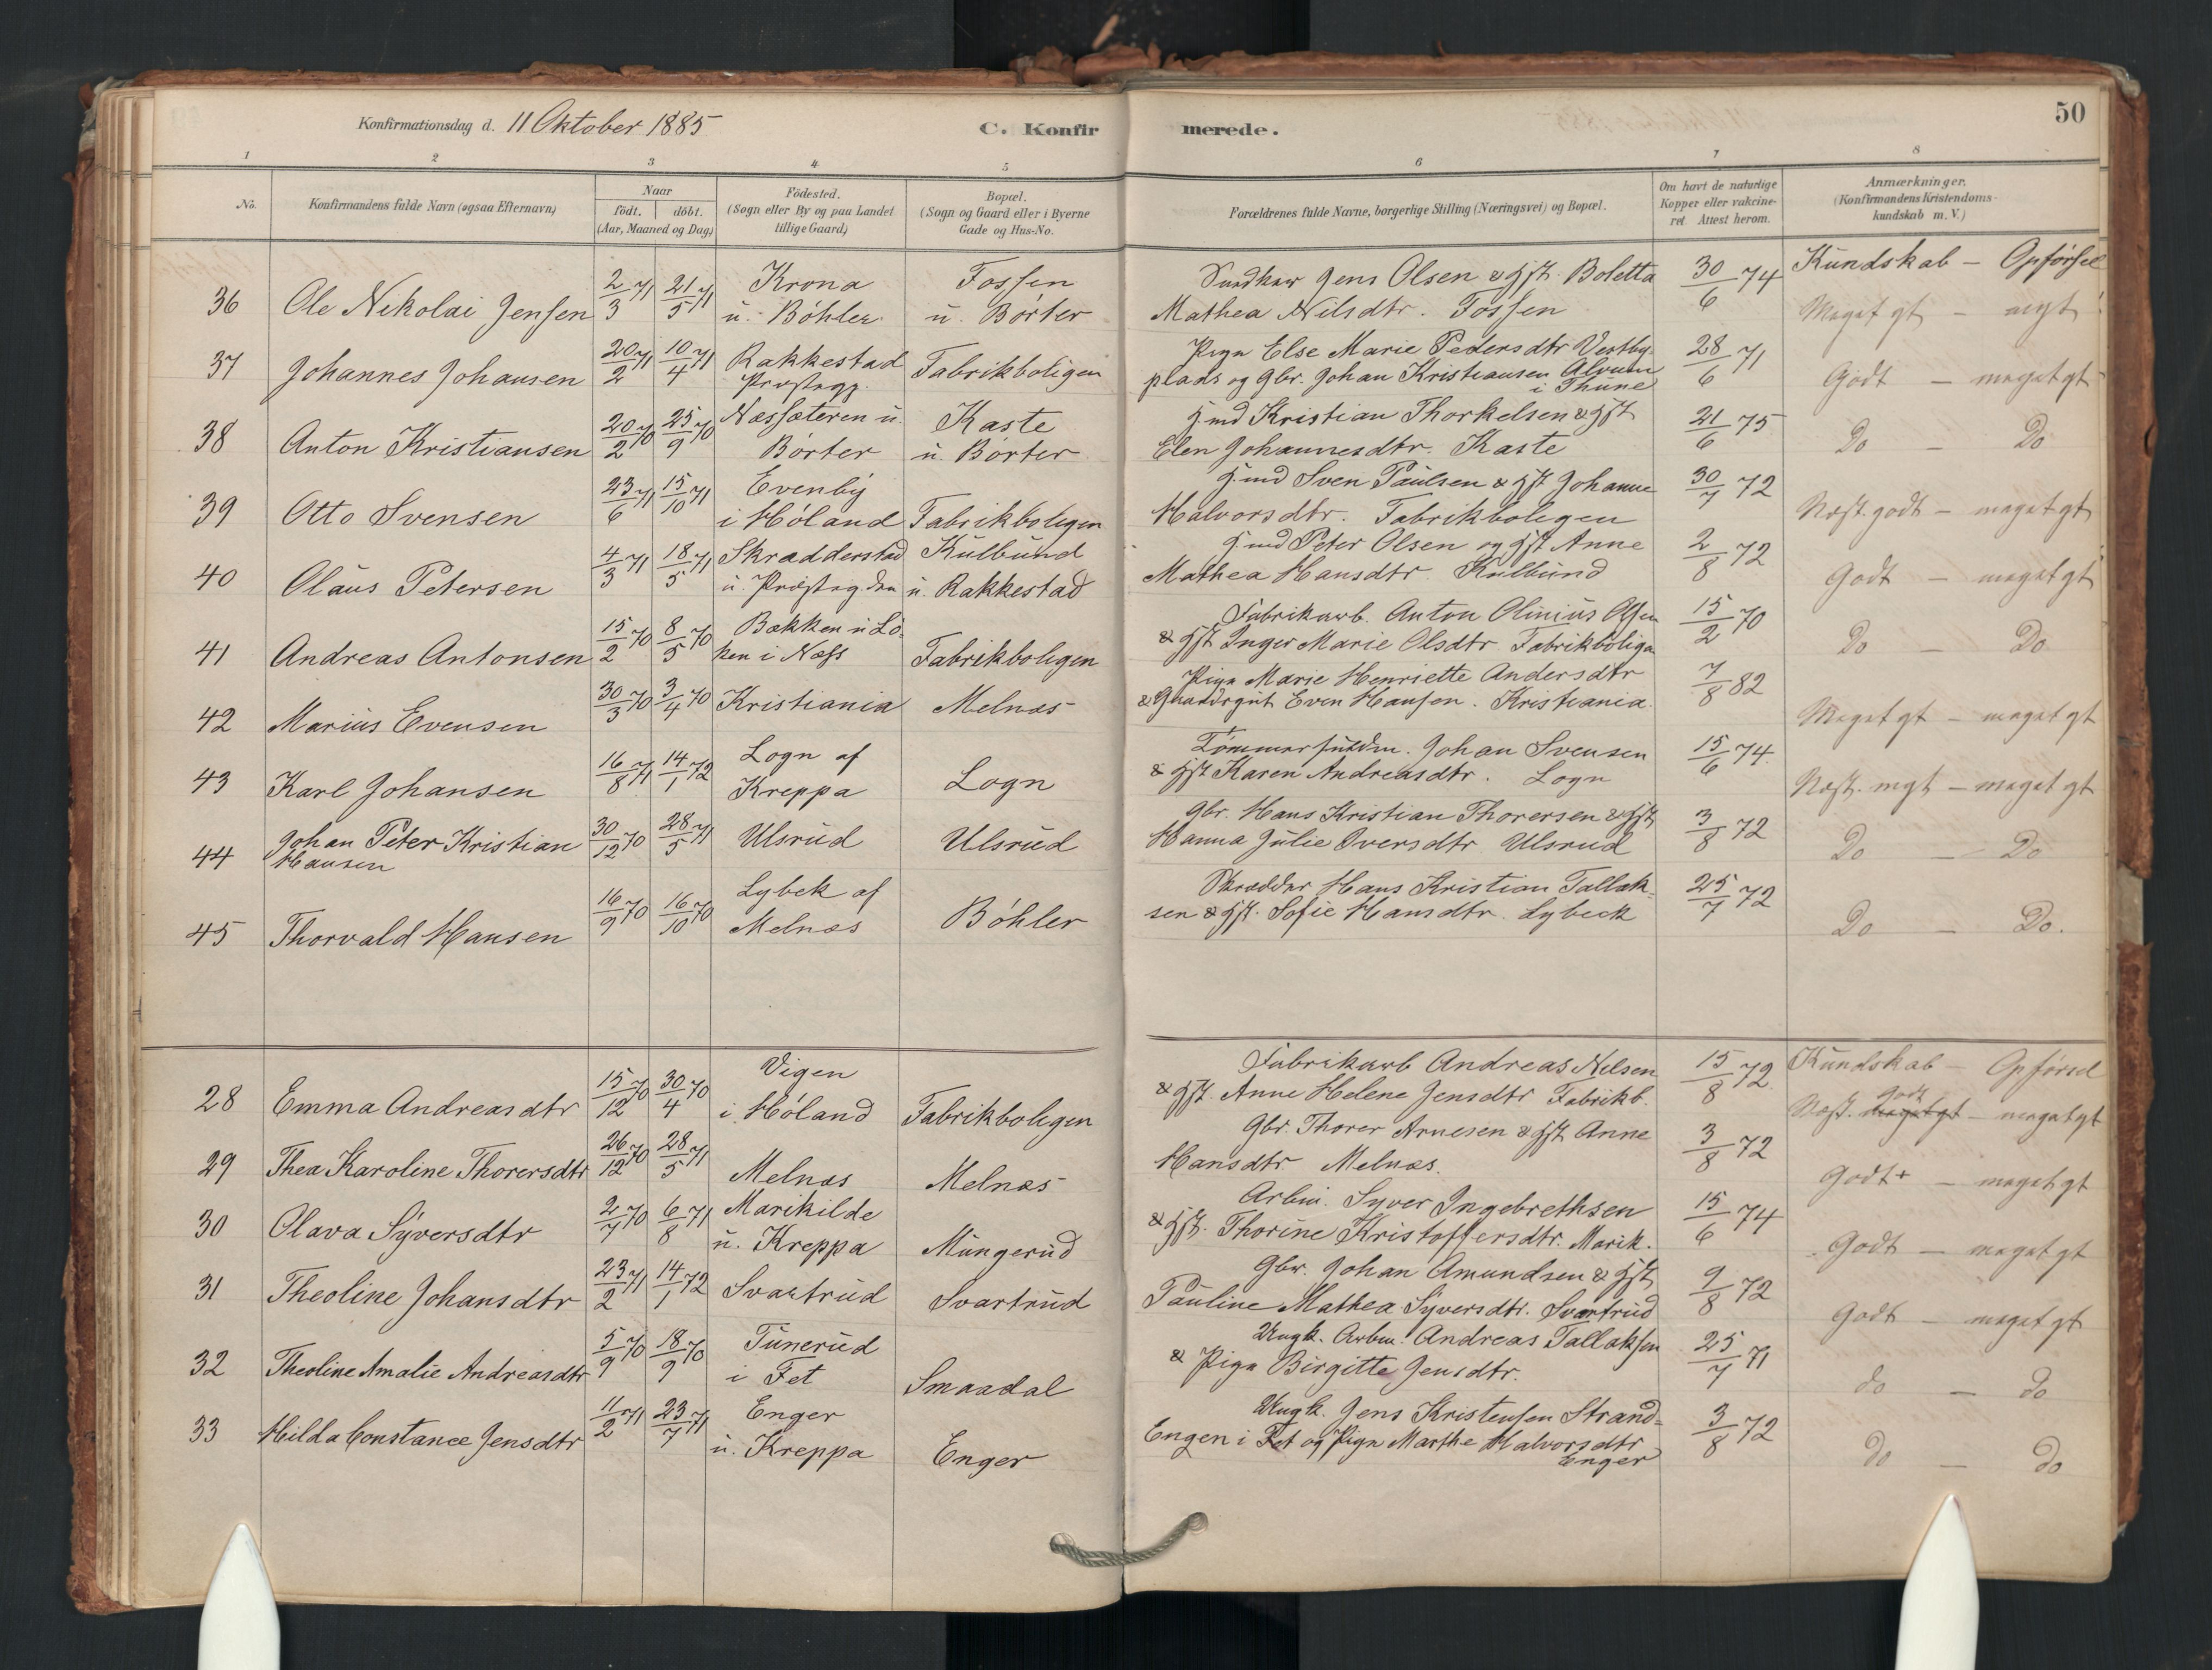 Konfirmationsdag d. 11 Oktober 1885
C. Konfirmerede.
50
1 2 3 4 5 6 7 8
No.
Konfirmandens fulde Navn (ogsaa Efternavn)
Naar
födt. döbt.
(Aar, Maaned og Dag)
Födested.
(Sogn eller By og paa Landet
tillige Gaard)
Bopæl.
(Sogn og Gaard eller i Byerne
Gade og Hus-No.
Forældrenes fulde Navne, borgerlige Stilling (Næringsvei) og Bopæl.
Om havt de naturlige
Kopper eller vakcine-
ret Attest herom.
Anmærkninger.
(Konfirmandens Kristendoms-
kundskab m. V.)
Kundskab – Opførsel
36 Ole Nikolai Jensen 2/3 71 21/5 71 Krona u. Böhler Fossen u. Börter
Jens Olsen & Hst. Boletta
Mathea Nilsdtr. Fossen
30/6 74 Meget gt – mgt
37 Johannes Johansen 20/2 71 10/4 71 Rakkestad Præstegg Fabrikboligen
Pige Else Marie Pedersdtr Vestby
plads og Gbr. Johan Kristiansen
i Thune
28/6 71 Godt – meget gt
38 Anton Kristiansen 20/2 70 25/9 70 Næssæteren u. Börter Kaste u. Börter
Hmd Kristian Thorkelsen & Hst
Elen Johannesdtr. Kaste
21/6 75 Do – Do
39 Otto Svensen 23/6 71 15/10 71 Evenby i Höland Fabrikboligen
Hmd Sven Paulsen & Hst Johanne
Halvorsdtr. Fabrikboligen
30/7 72 Næst. godt – meget gt
40 Olaus Petersen 4/3 71 18/5 71 Skrædderstad u. Præsteg.den Kulbund u. Rakkestad
Hmd Peter Olsen og Hst Anne
Mathea Hansdtr Kulbund
2/8 72 Godt – meget gt
41 Andreas Antonsen 15/2 70 8/5 70 Bækken u Lö-ken i Næss Fabrikboligen
Fabrikarb. Anton Olinius Olsen
& Hst Inger Marie Olsdtr Fabrikbolige
15/2 70 Do – Do
42 Marius Evensen 30/3 70 3/4 70 Kristiania Melnæs
Pige Marie Henriette Andersdtr
& Gaardsgut Even Hansen. Kristiania.
7/8 82 Meget gt – meget gt
43 Karl Johansen 16/8 71 14/1 72 Logn af Kreppa Logn
Johan Svensen
& Hst Karen Andreasdtr. Logn
15/6 74 Næst. mgt – meget gt
44 Johan Peter Kristian Hansen 30/12 70 28/5 71 Ulsrud Ulsrud
Gbr. Hans Kristian Thorersen & Hst
Hanna Julie Iversdtr Ulsrud
3/8 72 Do – Do
45 Thorvald Hansen 16/9 70 16/10 70 Lybek af Melnæs Böhler
Skrædder Hans Kristian Tallak-
sen & Hst. Sofie Hansdtr. Lybeck
25/7 72 Do – Do.
Kundskab – Opførsel
28 Emma Andreasdtr 15/12 70 30/4 70 Vigen i Höland Fabrikboligen
Fabrikarb Andreas Nilsen
& Hst. Anne Helene Jensdtr Fabrikb.
15/8 72 Næst. meget gt godt – meget gt
29 Thea Karoline Thorersdtr 26/12 70 28/5 71 Melnæs Melnæs
Gbr. Thorer Arnesen & Hst Anne
Hansdtr Melnæs.
3/8 72 Godt+ – meget gt
30 Olava Syversdtr 2/7 70 6/8 71 Marikilde u. Kreppa Mungerud
Arbm. Syver Ingebrethsen
& Hst. Thorine Kristoffersdtr. Marik.
15/6 74 Godt – meget gt
31 Theoline Johansdtr 23/2 71 14/1 72 Svartrud Svartrud
Gbr. Johan Amundsen & Hst
Pauline Mathea Syversdtr. Svartrud
9/8 72 Godt – meget gt
32 Theoline Amalie Andreasdtr 5/9 70 18/9 70 Tunerud i Fet Smaadal
Ungk. Arbm. Andreas Tallaksen
& Pige Birgitte Jensdtr.
25/7 71 do – do
33 Hilda Constance Jensdtr 11/2 71 23/7 71 Enger u. Kreppa Enger
Ungk. Jens Kristensen Strand-
Engen i Fet og Pige Marthe Halvorsdtr
Enger
3/8 72 do – do